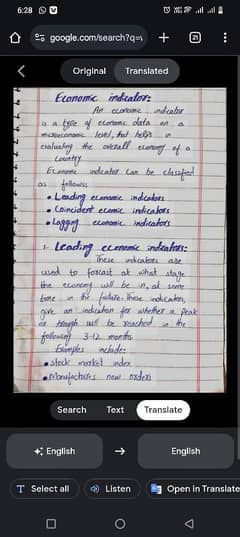 6:28
google.com/search?q=\
21
Original
Translated
Economic indicator:
An economic indicator
is a type of economic data on a
microeconomic level, that helps in
evaluating the overall economy of a
country
Economic indicator can be classified
as follows:
• Leading economic indicators
• Coincident economic indicators
• Lagging economic indicators
1- Leading economic indicators:
These indicators are
used to forcast at what stage
the economy will be in, at some
time in the future. These indicators,
give an indication for whether a peak
or trough will be reached in the
following 3-12 months
Examples include:
• stock market index
• Manufacturers new orders
Search
Text
Translate
English
English
Select all
Listen
Open in Translate